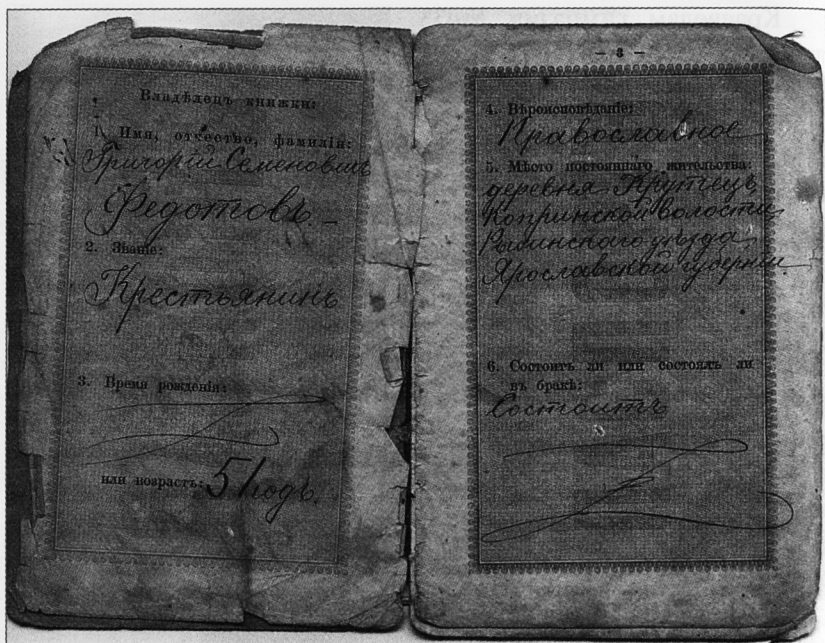 Владѣлецъ книжки:
1. Имя, отчество, фамилія:
Григорій Семеновичъ
Федотовъ.
2. Званіе:
Крестьянинъ
3. Время рожденія:
или возрастъ: 51 годъ.
— 3 —
4. Вѣроисповѣданіе:
Православное
5. Мѣсто постояннаго жительства:
деревня Крутецъ
Копринской волости,
Рыбинскаго уѣзда,
Ярославской губерніи.
6. Состоитъ ли или состоялъ ли
въ бракѣ:
Состоитъ